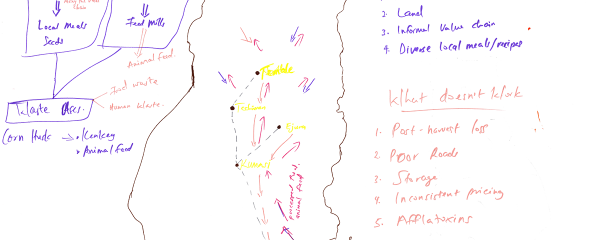 Local Meals
Seeds
Feed Mills
Animal Feed.
Waste Uses.
Food waste
Human Waste.
Corn Husk → • Kenkey
• Animal Food
Tamale
Techiman
Kumasi
processed food,
animal food
2. Land
3. Informal value chain
4. Diverse local meals/recipes
What doesn't work
1. Post-harvest loss
2. Poor Roads
3. Storage
4. Inconsistent pricing
5. Afflatoxins